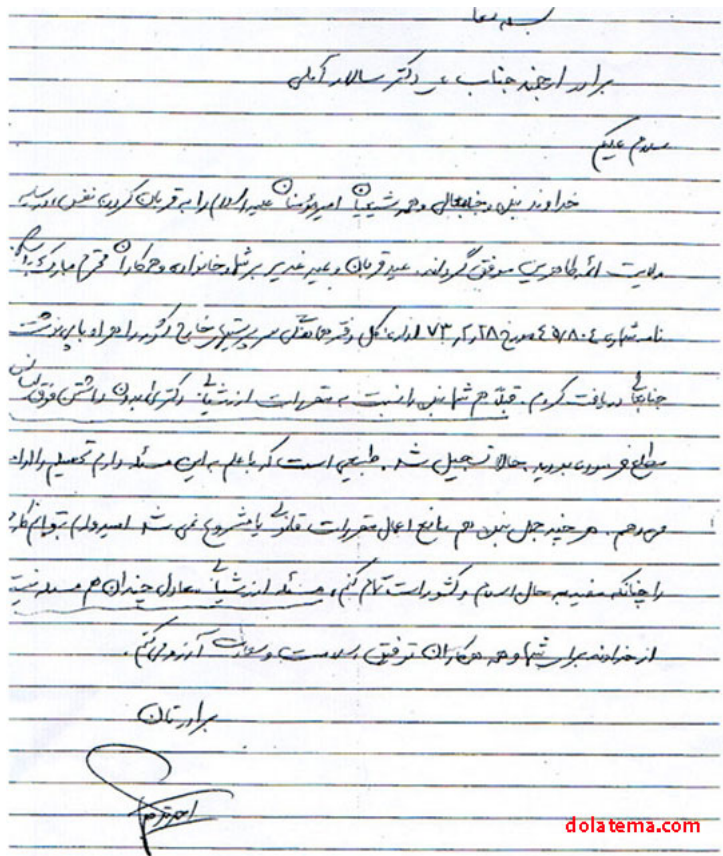 بسمه تعالی
برادر ارجمند جناب دکتر سالار آملی
سلام علیکم
خداوند بنده و جنابعالی و همه شیعیان امیرالمؤمنان علیه السلام را به قربان کردن نفس در سایه
ولایت ائمه طاهرین موفق گرداند. عید قربان و عید غدیر بر شما و خانواده و همکاران محترم مبارک باد.
نامه شماره مورخ ۷۳٫۲٫۲۸ اداره کل دفترهای سرپرستیهای خارج کشور را همراه با پی نوشت
جنابعالی دریافت کردم. قبلاً هم شما بنده را نسبت به مقررات ارزشیابی دکترای بدون داشتن فوق لیسانس
مطلع فرموده بودید حالا تسجیل شد. طبیعی است که با علم به این مسئله دارم تحصیلم را ادامه
می دهم. هر چند جهل بنده هم مانع اعمال مقررات قانونی یا مشروع نمی شد امیدوارم بتوانم کار
را چنانکه مفید به حال اسلام و کشور است تمام کنم، مسئله ارزشیابی معادل چندان هم مسئله نیست
از خداوند برای شما و همه همکاران توفیق، سلامت و سعادت آرزو می کنم.
برادرتان
dolatema.com